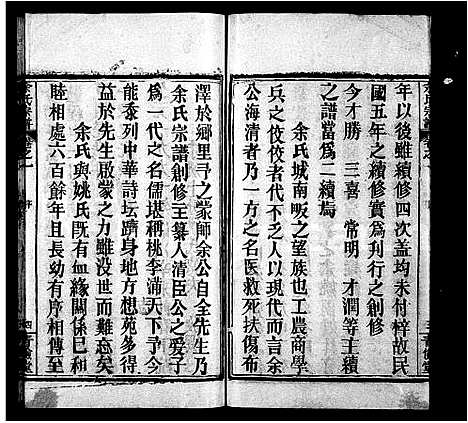 年以後雖續修四次盖均未付梓故民
國五年之續修實爲刋行之創修
今才勝　三喜　常明　才潤等主續
之譜當爲二續焉
余氏城南畈之望族也工農商學
兵之佼佼者代不乏人以現代而言庆
公海清者乃一方之名医救死扶傷布
澤於鄉里予之蒙師余公自全先生乃
余氏宗譜創修主纂人清臣公之爱子
爲一代之名儒堪稱桃李滿天下予今
能忝列中華詩坛躋身地方想苑多得
益於先生啟蒙之力雖没世而難忘矣
余氏與姚氏既有血緣關係已和
睦相處六百餘年且長幼有序相傳至
余氏宗譜
卷之一
序
四